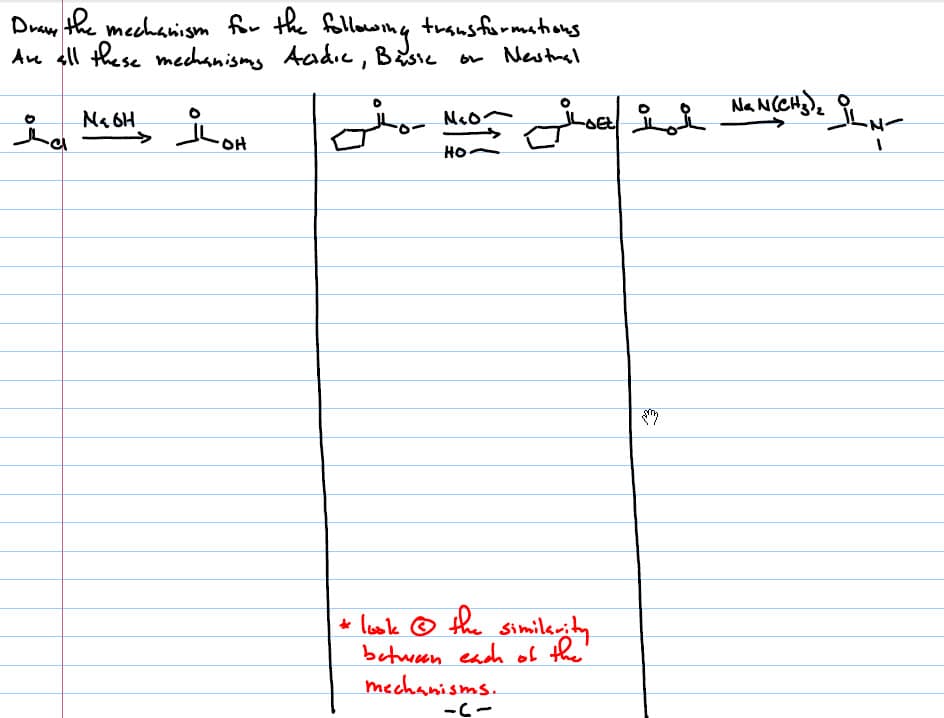 Draw the mechanism for the following transformations
Are all these mechanisms Acidic, Basic or Neutral
O Cl NaOH O OH
O O NaO HO O OEt
O O O NaN(CH3)2 O N
* look @ the similarity
between each of the
mechanisms.
-C-